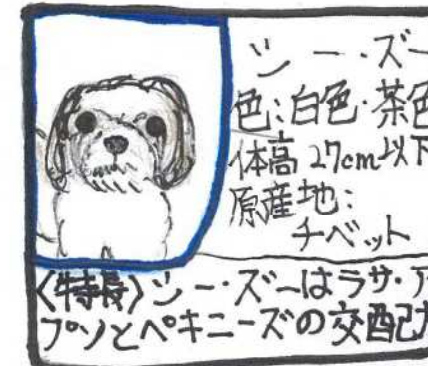 シー・ズー
色:白色・茶色
体高27cm以下
原産地:
チベット
〈特長〉シー・ズーはラサ・ア
プソとペキニーズの交配